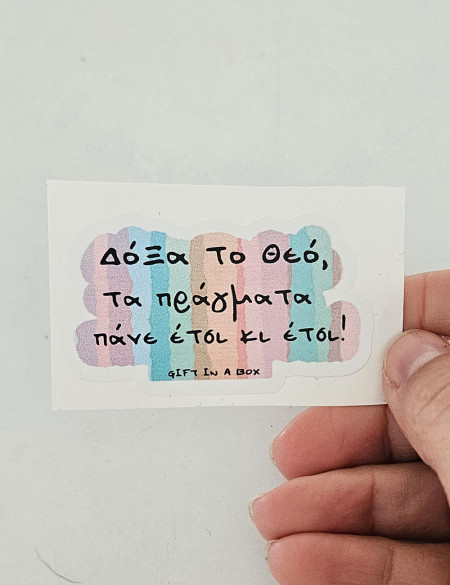 Δόξα το Θεό,
τα πράγματα
πάνε έτσι κι έτσι!
GIFT IN A BOX